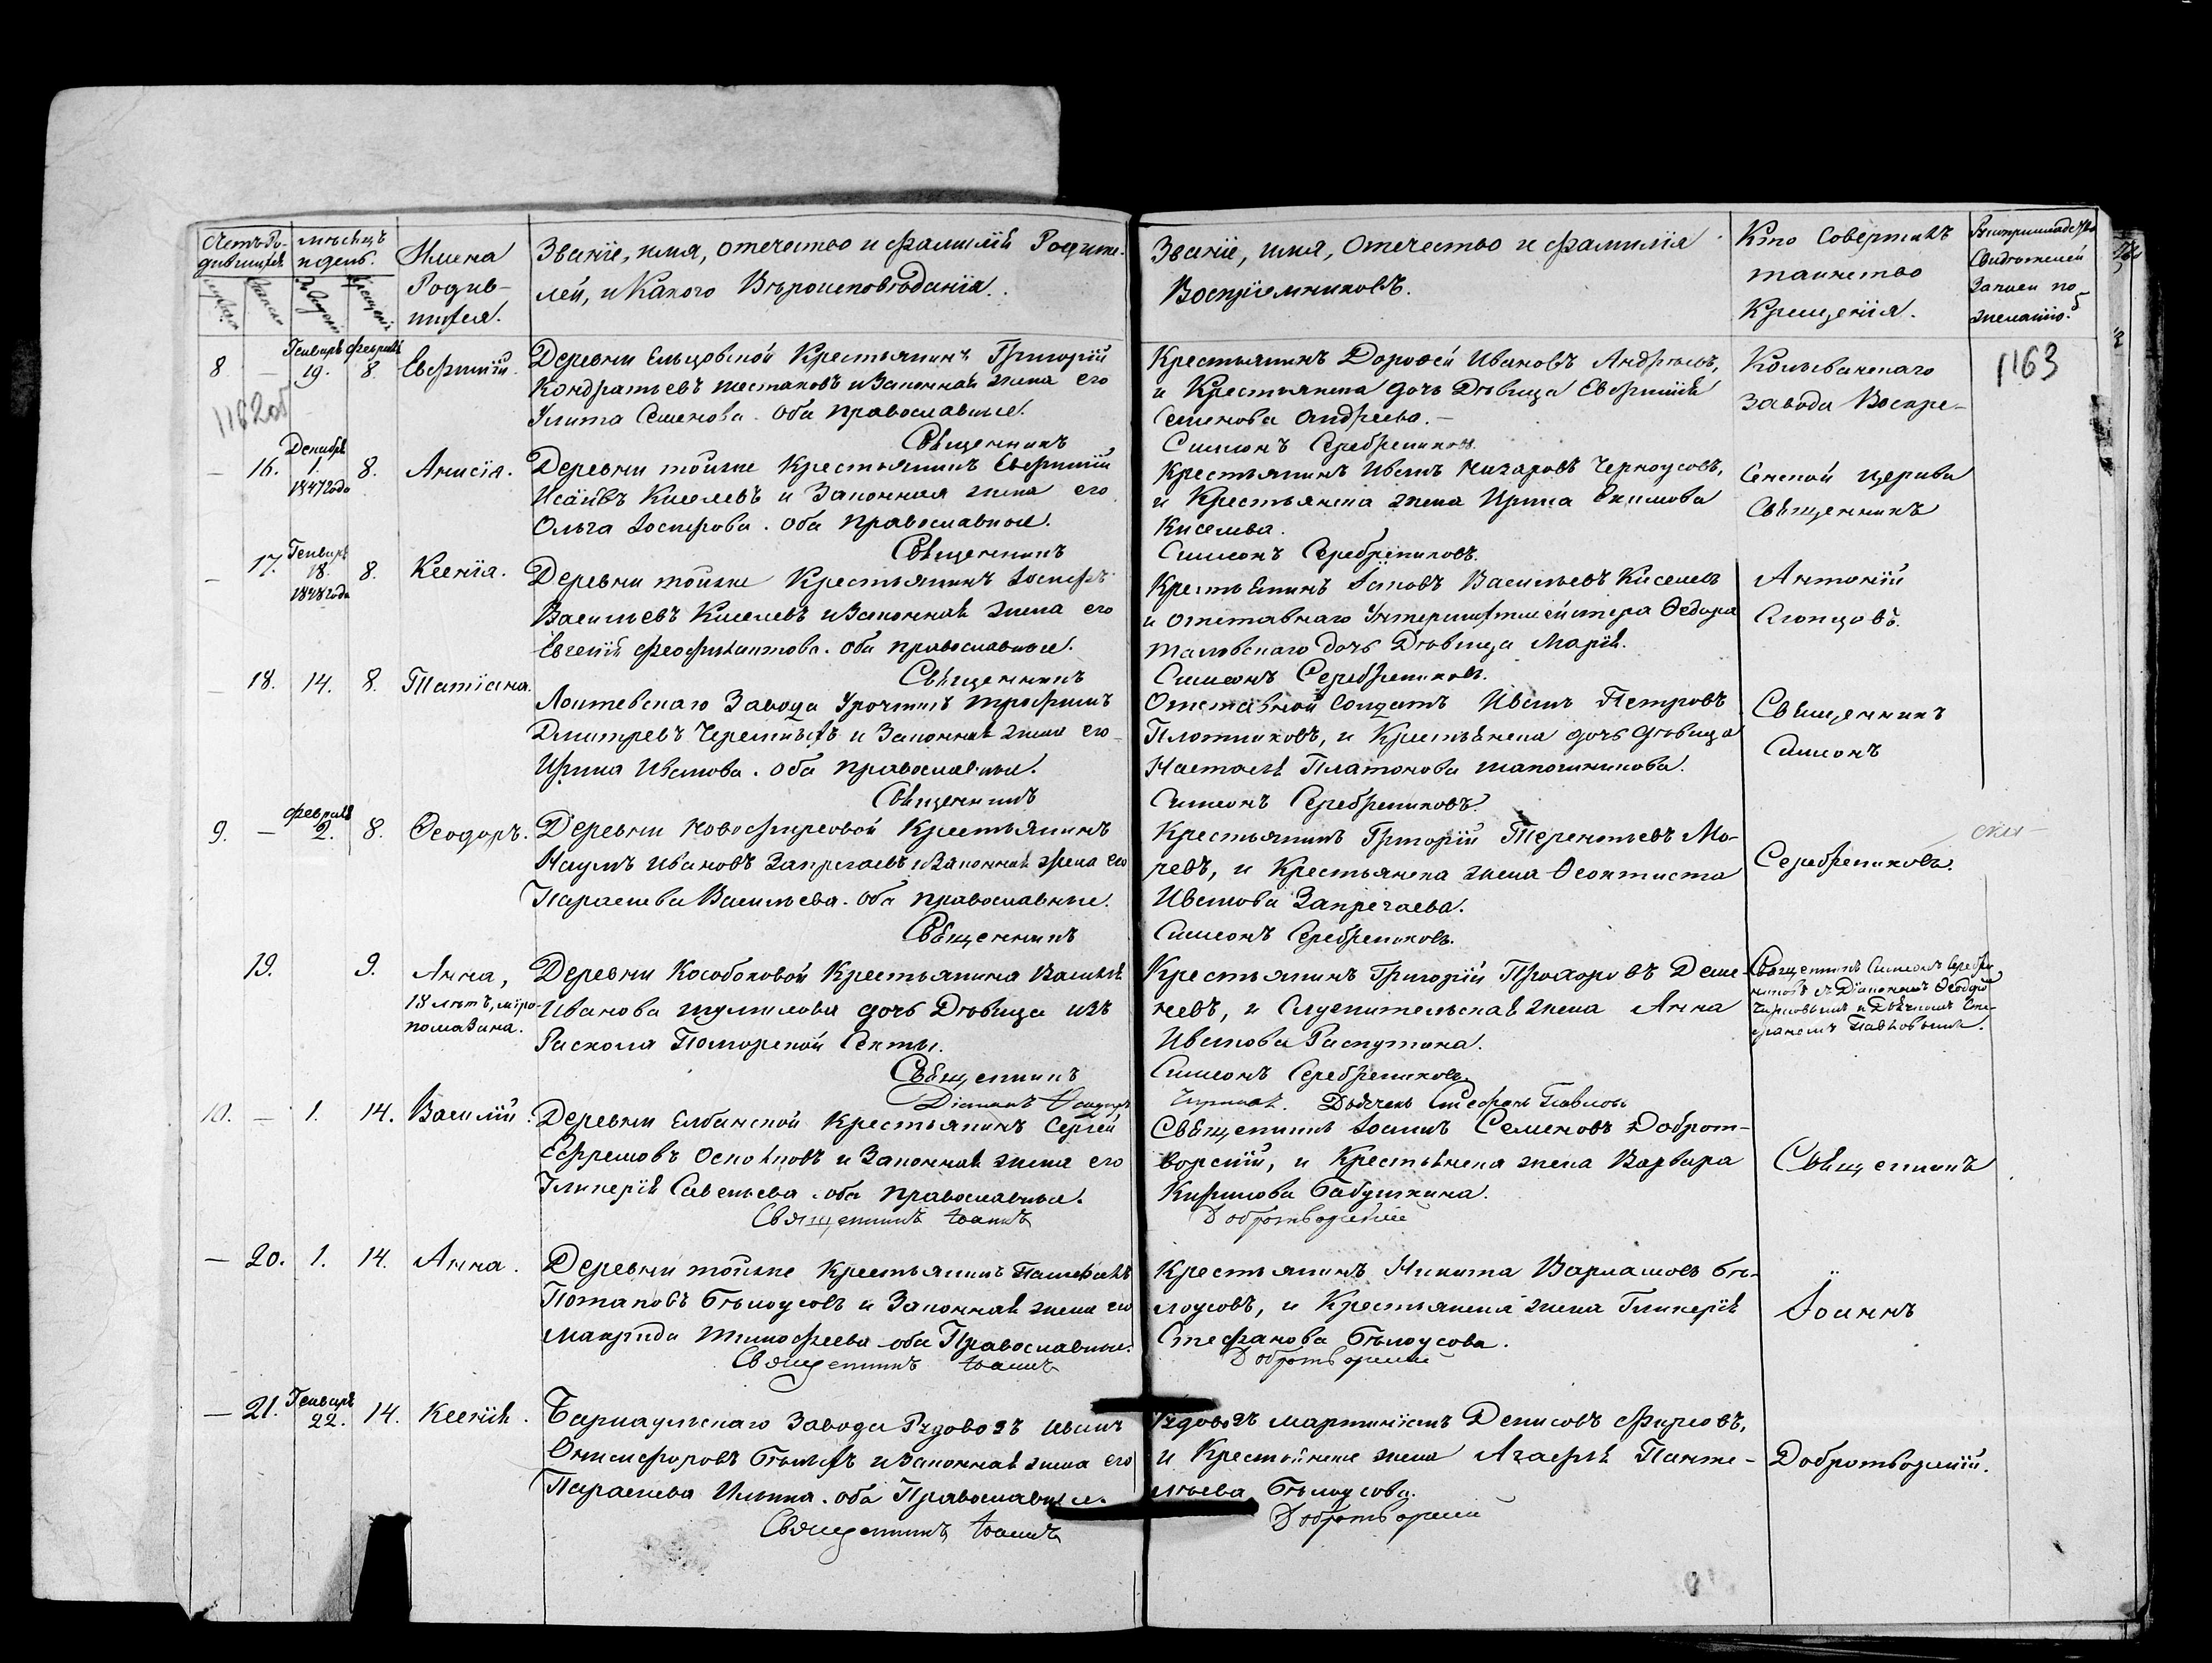 Счетъ Ро-
дившихся.
мѣсяцъ
и день.
Имена
Родив-
шихся.
Званіе, имя, отечество и фамилія Родите-
лей, и Какого Вѣроисповѣданія.
Званіе, имя, Отечество и фамилія
Воспріемниковъ.
Кто Совершалъ
таинство
Крещенія.
Свидѣтелей
Записи по
желанію.
8. — Генваря 19. Февраля 8. Евфимій.
Деревни Ельцовской Крестьянинъ Григорій
Кондратьевъ Шестаковъ и Законная жена его
Улита Семенова. Оба православные.
Священникъ
Крестьянинъ Дорофей Ивановъ Андреевъ,
и Крестьянска дочь Дѣвица Евфимія
Семенова Андреева. —
Симеонъ Серебрениковъ.
Колыванскаго
завода Воскре-
1163
1162об
— 16. Декабря 1. 1847 года 8. Анисія.
Деревни тойже Крестьянинъ Евфимій
Исаівъ Киселевъ и Законная жена его
Ольга Іосифова. Оба православные.
Священникъ
Крестьянинъ Иванъ Назаровъ Черноусовъ,
и Крестьянска жена Ирина Екимова
Киселева.
Симеонъ Серебрениковъ.
сенской церкви
Священникъ
— 17. Генваря 18. 1848 года 8. Ксенія.
Деревни тойже Крестьянинъ Іосифъ
Васильевъ Киселевъ и Законная жена его
Евгенія Феофилактова. Оба православные.
Священникъ
Крестьянинъ Іаковъ Васильевъ Киселевъ
и отставнаго Унтершихтмейстера Ѳедора
Таловскаго дочь Дѣвица Марія.
Симеонъ Серебрениковъ.
Антоній
— 18. 14. 8. Татіана.
Локтевскаго Завода Урочникъ Трофимъ
Дмитревъ Черемныхъ и Законная жена его
Ирина Иванова. Оба православные.
Священникъ
Отставной Солдатъ Иванъ Петровъ
Плотниковъ, и Крестьянска дочь дѣвица
Настасья Платонова Шапошникова.
Симеонъ Серебрениковъ.
Священникъ
Симеонъ
9. — Февраля 2. 8. Ѳеодоръ.
Деревни Новофирсовой Крестьянинъ
Наумъ Ивановъ Запрегаевъ и Законная жена его
Параскева Васильева. Оба православные.
Священникъ
Крестьянинъ Григорій Терентьевъ Мо-
чевъ, и Крестьянска жена Ѳеоктиста
Иванова Запрегаева.
Симеонъ Серебрениковъ.
Серебрениковъ.
19. 9. Анна,
18 лѣтъ, мѵро-
помазана.
Деревни Кособоковой Крестьянина Василья
Иванова Шумилова дочь Дѣвица изъ
Раскола Поморской Секты.
Священникъ
Діаконъ Ѳеодоръ
Крестьянинъ Григорій Прохоровъ Деме-
невъ, и Служительская жена Анна
Иванова Распутина.
Симеонъ Серебрениковъ.
Дьячекъ Стефанъ Павловъ
Священникъ Симеонъ Серебре-
никовъ съ Діакономъ Ѳеодоромъ
и Дьячкомъ Сте-
фаномъ Павловымъ.
10. — 1. 14. Василій.
Деревни Елбанской Крестьянинъ Сергей
Ефремовъ и Законная жена его
Гликерія Савельева. оба православные.
Священникъ Іоаннъ
Священникъ Іоаннъ Семеновъ Доброт-
ворскій, и Крестьянска жена Варвара
Кирилова Бабушкина.
Добротворскій
Священникъ
— 20. 1. 14. Анна.
Деревни тойже Крестьянинъ
Потаповъ Бѣлоусовъ и Законная жена его
Макрида Тимофеева оба Православные.
Священникъ Іоаннъ
Крестьянинъ Никита Варламовъ Бѣ-
лоусовъ, и Крестьянска жена Гликерія
Стефанова Бѣлоусова.
Добротворскій
Іоаннъ
— 21. Генваря 22. 14. Ксенія.
Барнаульскаго Завода Рудовозъ Иванъ
Онисифоровъ Бѣлыхъ и Законная жена его
Параскева Ильина. оба Православные.
Священникъ Іоаннъ
Рудовозъ Мартиніанъ Денисовъ Фирсовъ,
и Крестьянска жена Агафья Панте-
лѣева Бѣлоусова.
Добротворскій
Добротворскій.